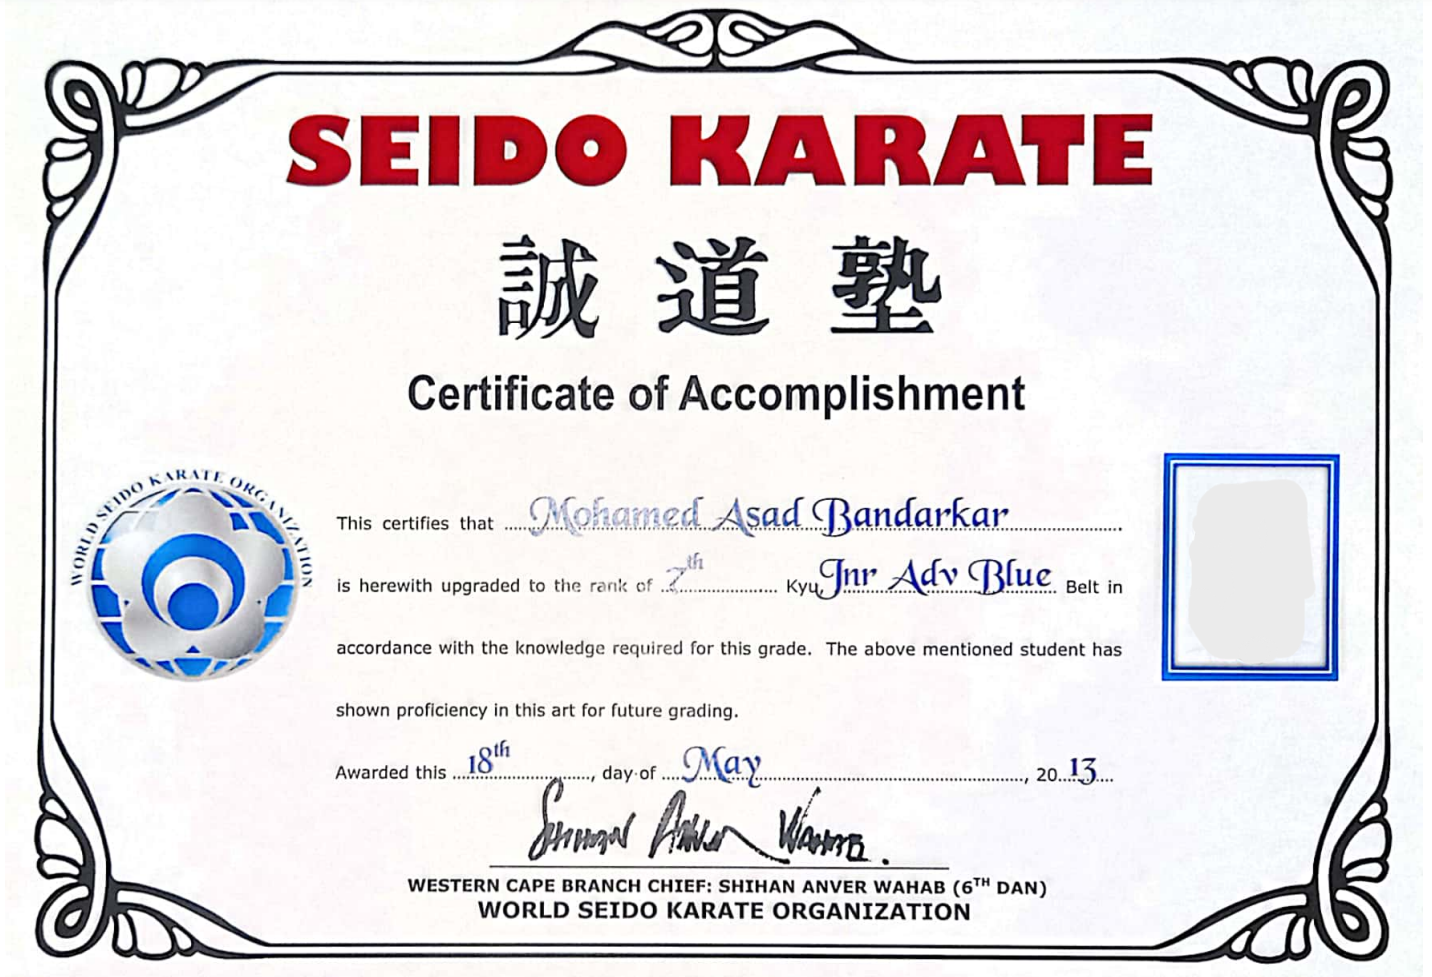 SEIDO KARATE
誠道塾
Certificate of Accomplishment
WORLD SEIDO KARATE ORGANIZATION
This certifies that Mohamed Asad Bandarkar
is herewith upgraded to the rank of 7th Kyu, Jnr Adv Blue Belt in
accordance with the knowledge required for this grade. The above mentioned student has
shown proficiency in this art for future grading.
Awarded this 18th, day of May, 2013
Shihan Anver Wahab.
WESTERN CAPE BRANCH CHIEF: SHIHAN ANVER WAHAB (6TH DAN)
WORLD SEIDO KARATE ORGANIZATION